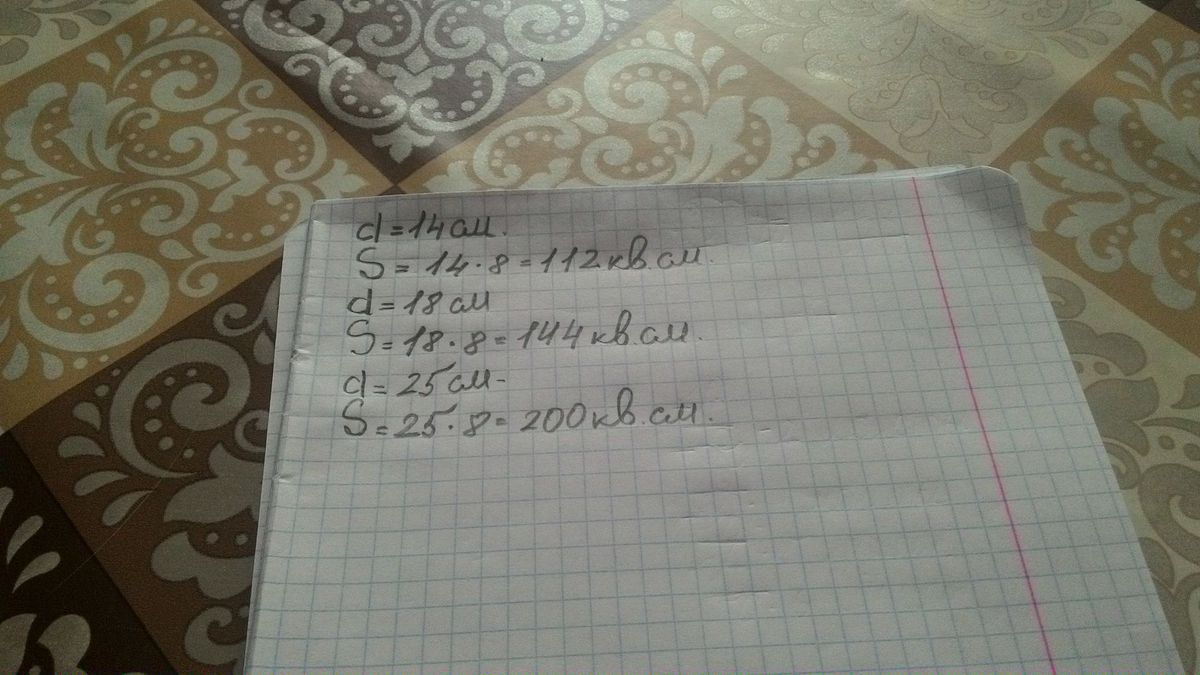 d = 14 см.
S = 14 · 8 = 112 кв. см.
d = 18 см
S = 18 · 8 = 144 кв. см.
d = 25 см -
S = 25 · 8 = 200 кв. см.